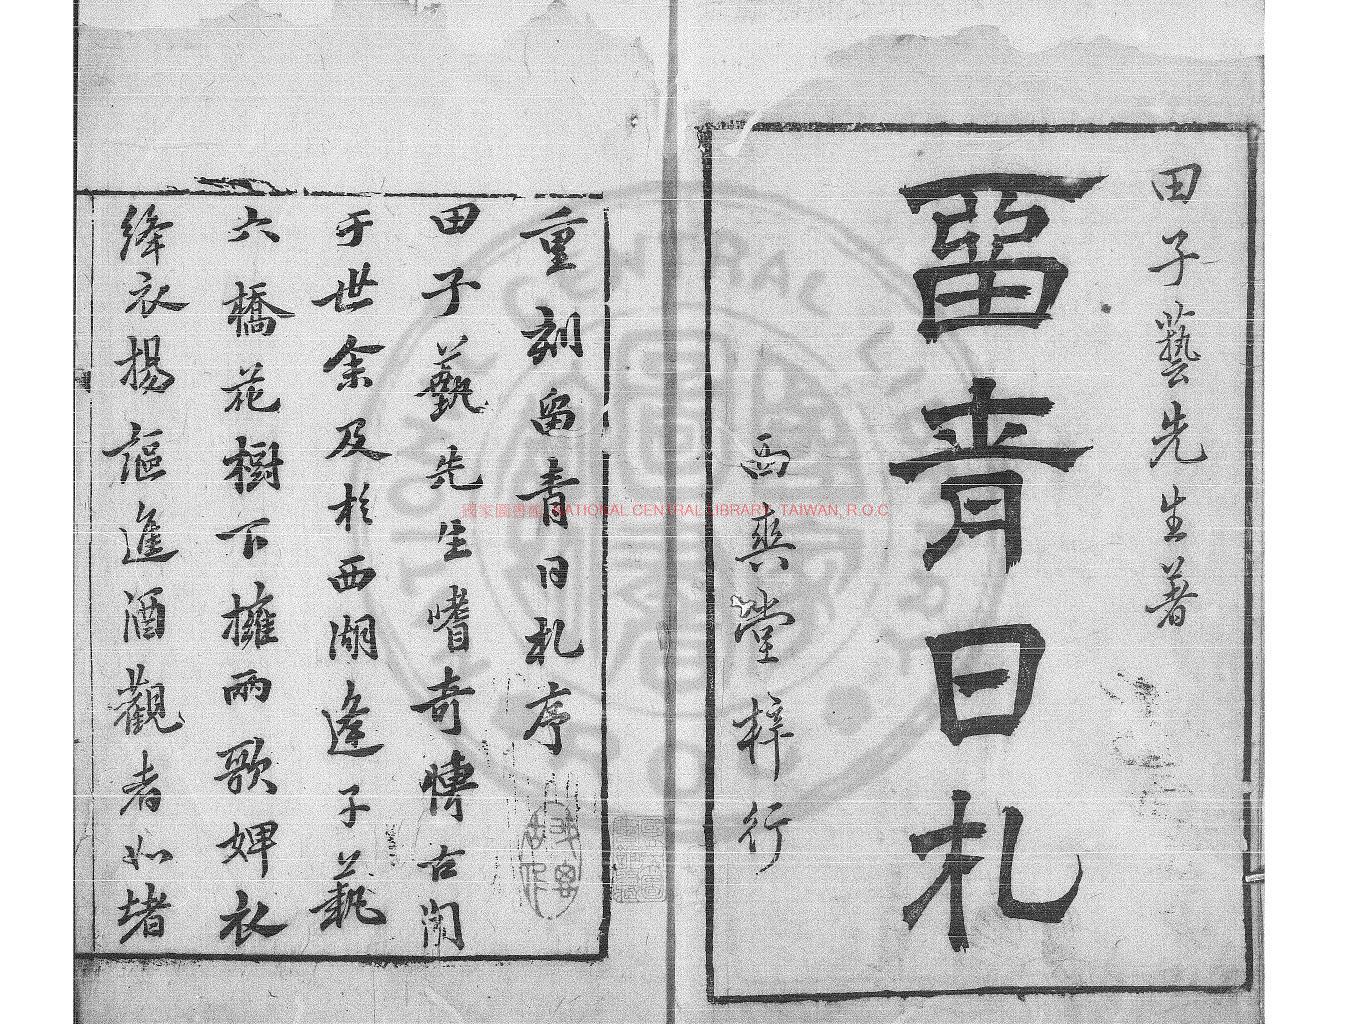 田子藝先生著
留青日札
西爽堂梓行
重刻留青日札序
田子藝先生嗜奇慱古聞
于世余及於西湖逢子藝
六橋花樹下擁兩歌婢衣
絳衣揚謳進酒觀者如堵
國家圖書館 NATIONAL CENTRAL LIBRARY, TAIWAN, R.O.C